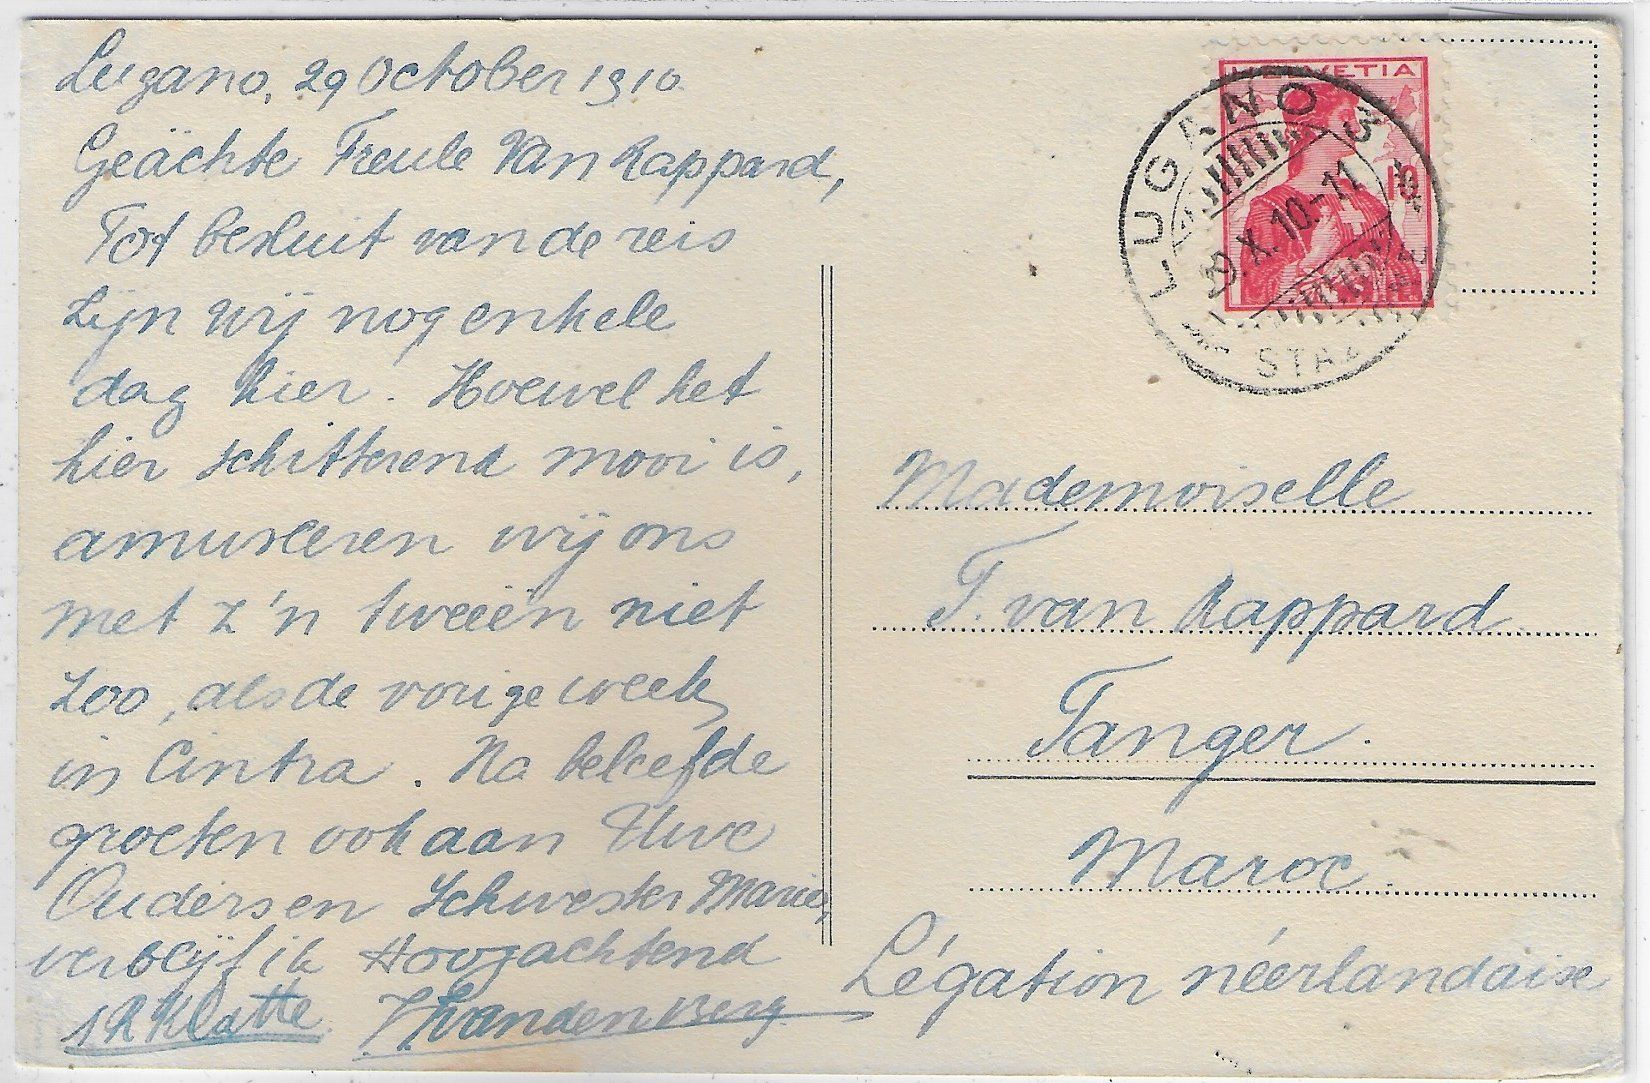 Lugano, 29 October 1910.
Geächte Freule Van Rappard,
Tot besluit van de reis
zijn wij nog enkele
dag hier. Hoewel het
hier schitterend mooi is,
amuseeren wij ons
met z'n tweeën niet
zoo, als de vorige week
in Cintra. Na beleefde
groeten ook aan Uwe
Ouders en Schwester Marie,
verblijf ik Hoogachtend
Klatte vandenBerg
HELVETIA
10
LUGANO 3
29.X.10.-11
Mademoiselle
F. van Rappard
Tanger.
Maroc.
Légation néerlandaise